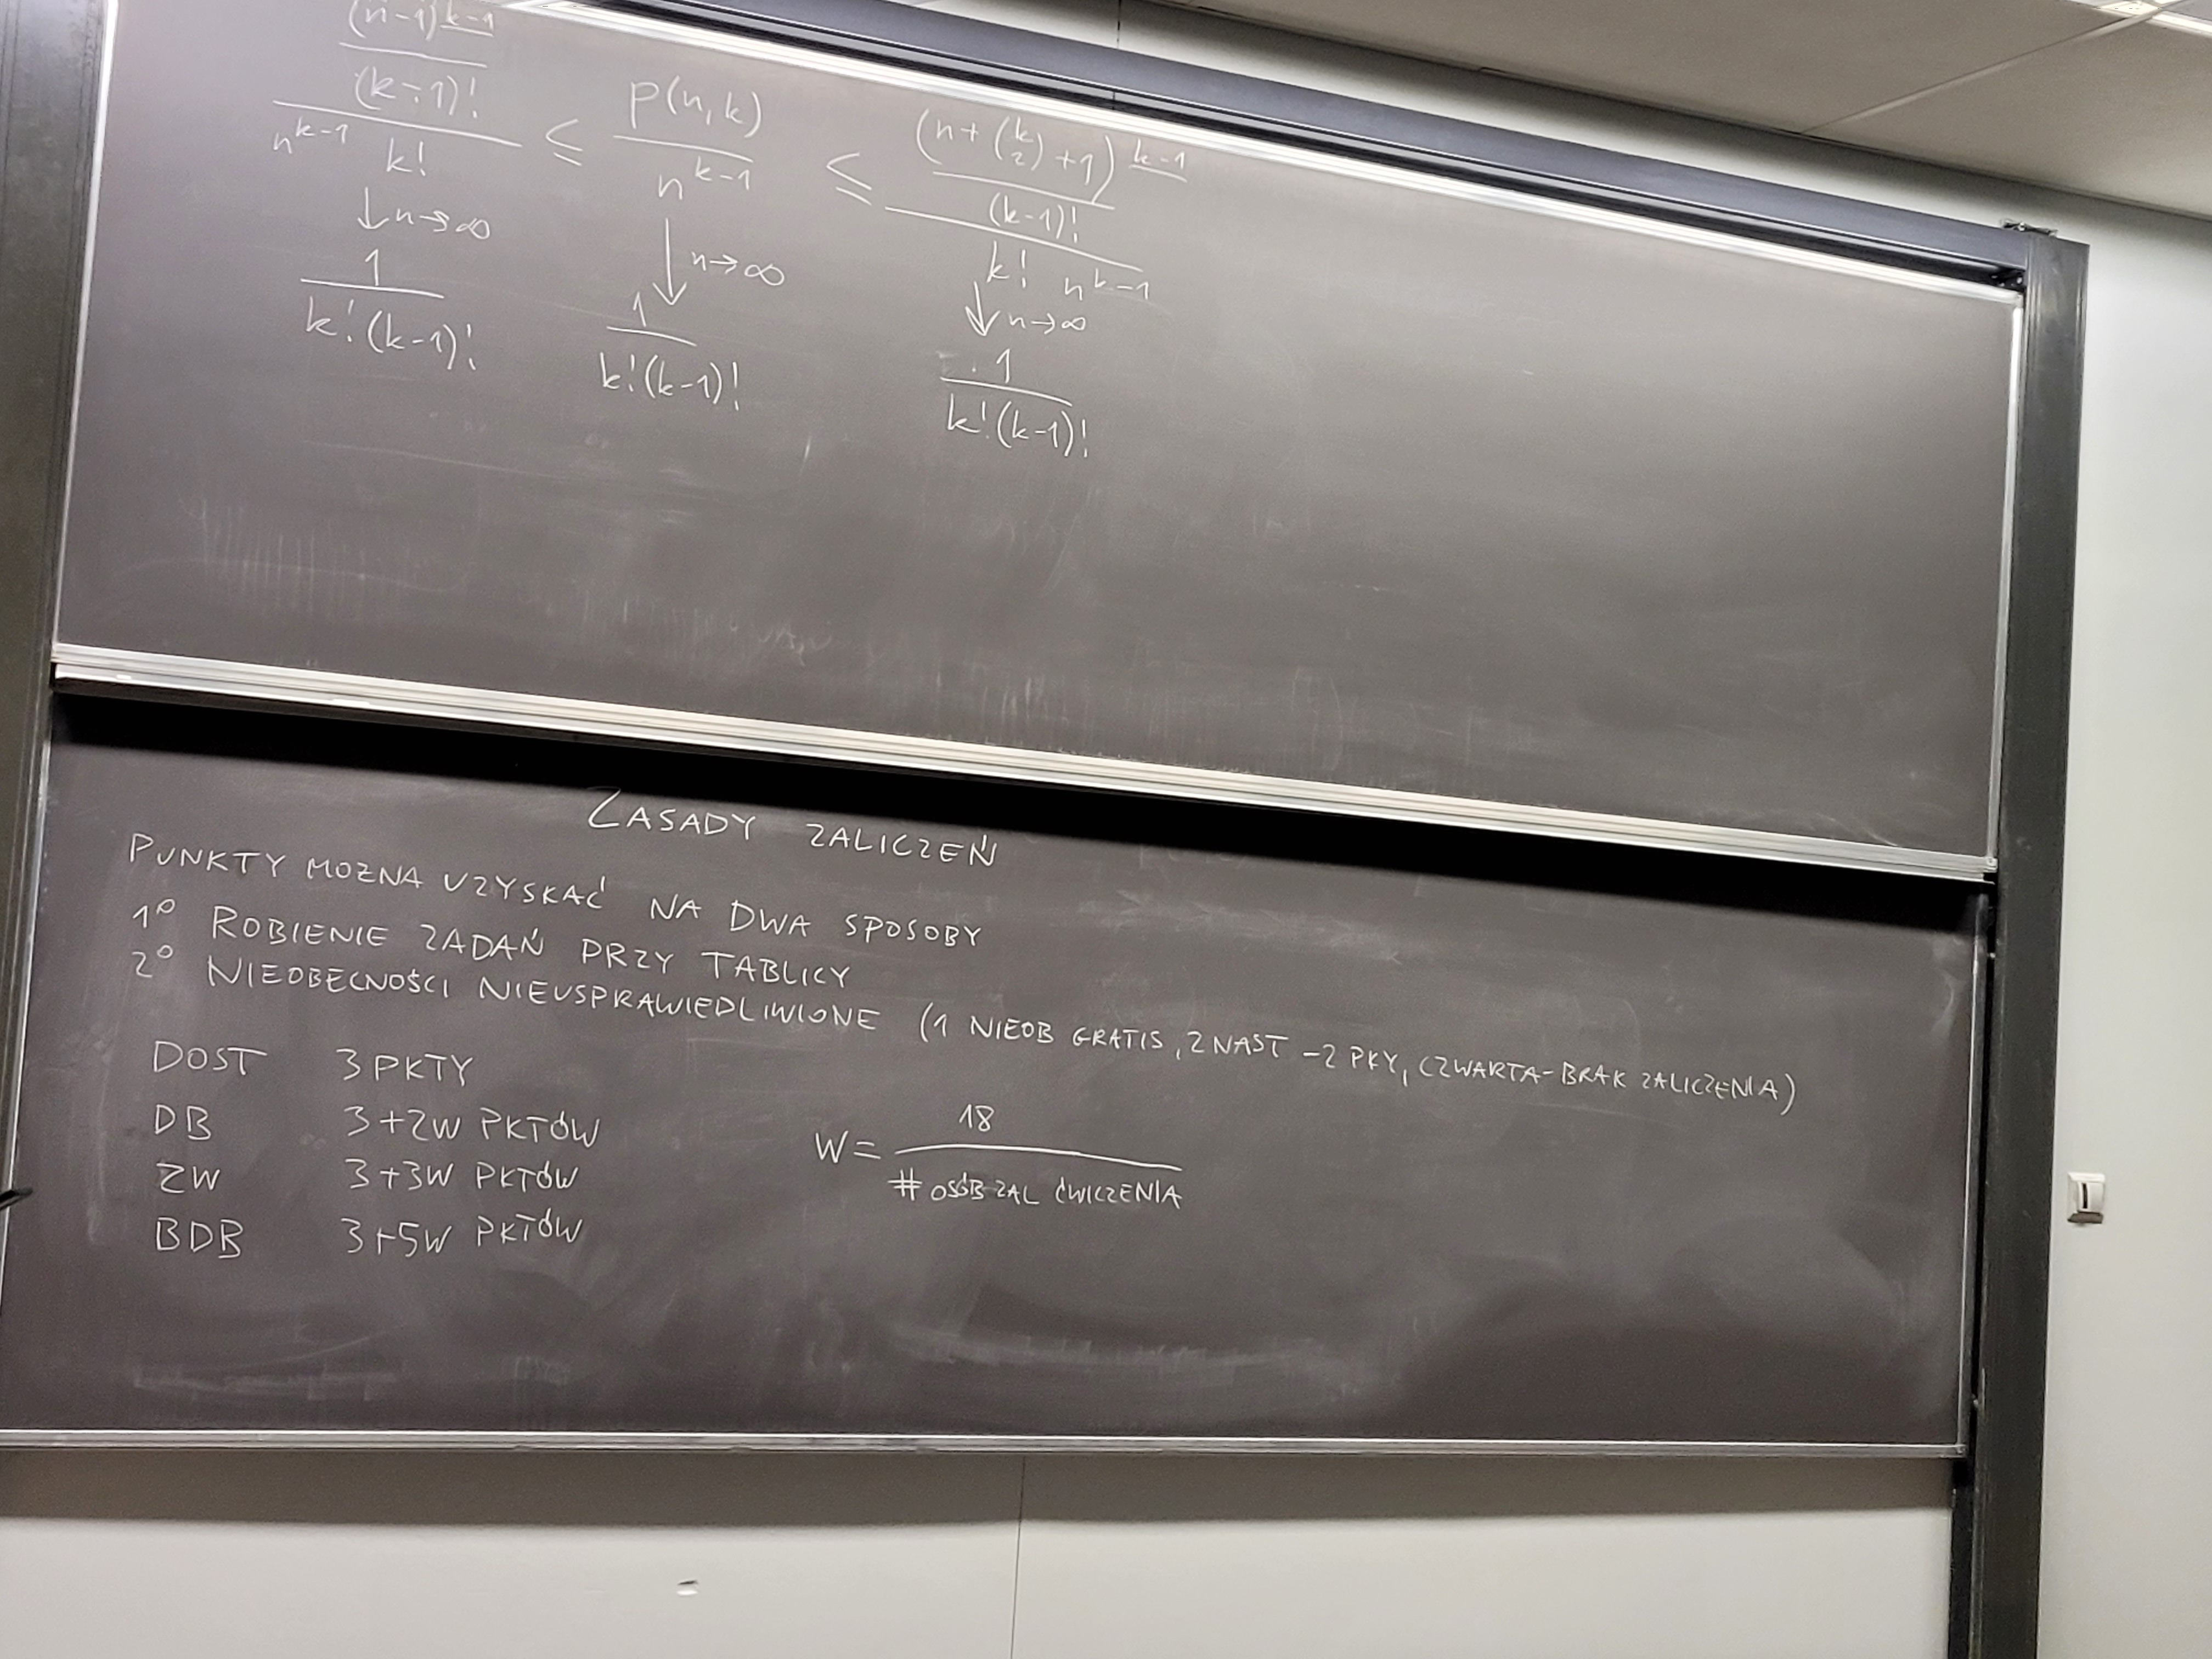 (n-1)^{\underline{k-1}} / (k-1)! / n^{k-1} k! ≤ p(n,k) / n^{k-1} ≤ (n+(k 2)+1)^{\underline{k-1}} / (k-1)! / k! n^{k-1}
↓ n→∞ ↓ n→∞ ↓ n→∞
1 / k!(k-1)! 1 / k!(k-1)! 1 / k!(k-1)!
ZASADY ZALICZEŃ
PUNKTY MOZNA UZYSKAĆ NA DWA SPOSOBY
1° ROBIENIE ZADAŃ PRZY TABLICY
2° NIEOBECNOŚCI NIEUSPRAWIEDLIWIONE (1 NIEOB GRATIS, 2 NAST -2 PKY, CZWARTA-BRAK ZALICZENIA)
DOST 3 PKTY
DB 3+2W PKTÓW
ZW 3+3W PKTÓW
BDB 3+5W PKTÓW
W = 18 / # OSÓB ZAL ĆWICZENIA